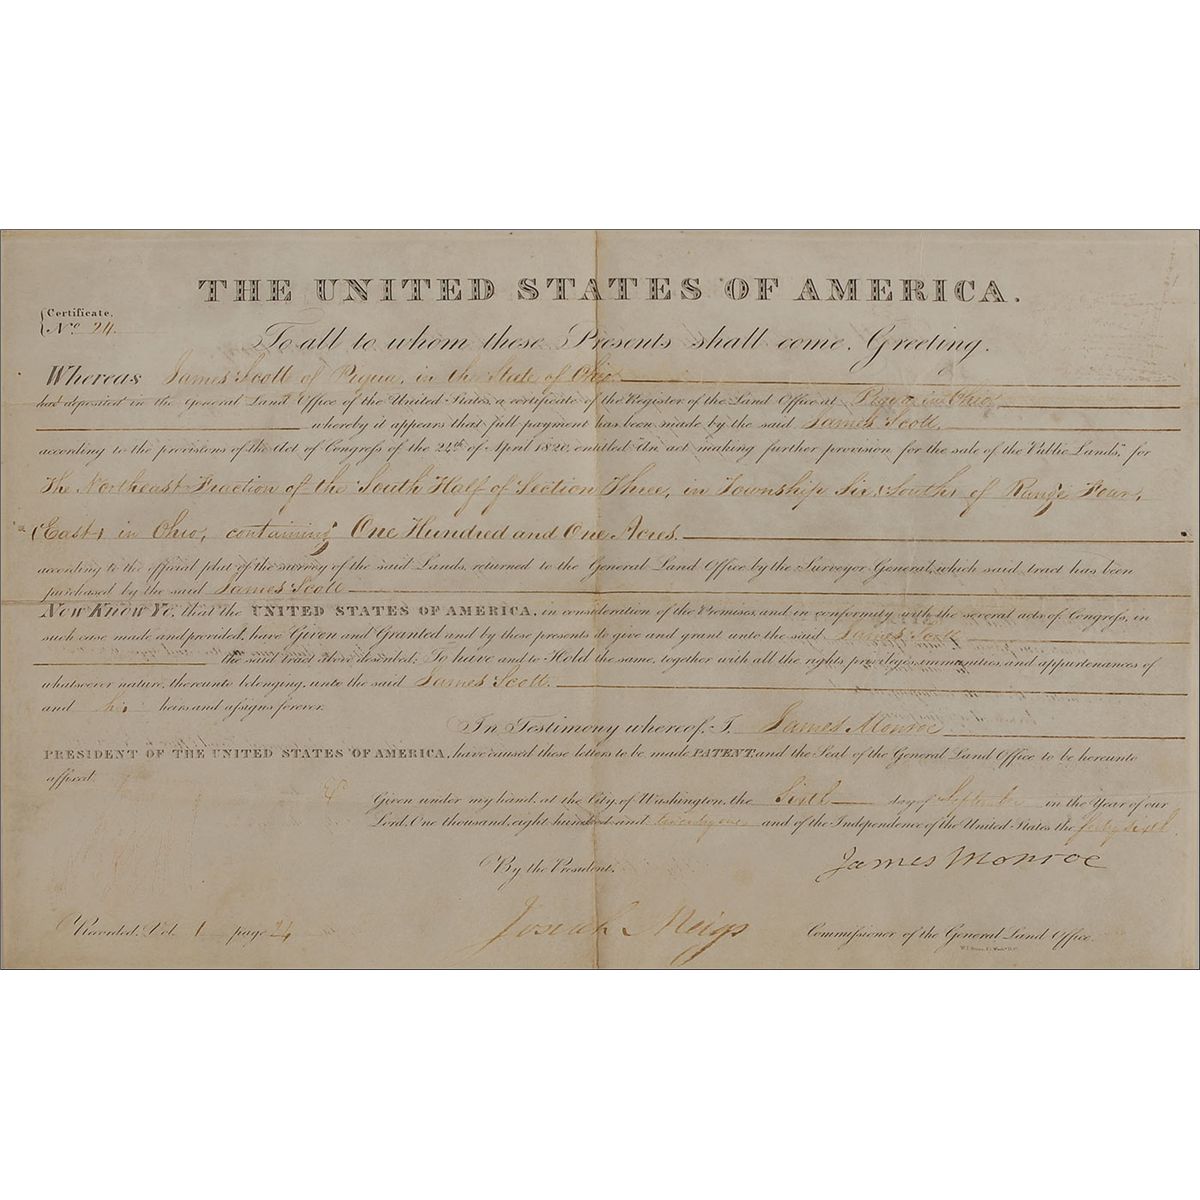 THE UNITED STATES OF AMERICA.
Certificate.
No. 24.
To all to whom these Presents shall come, Greeting.
Whereas James Scott of Piqua, in the State of Ohio
has deposited in the General Land Office of the United States, a certificate of the Register of the Land Office at Piqua in Ohio
whereby it appears that full payment has been made by the said James Scott,
according to the provisions of the Act of Congress of the 24th of April 1820, entitled "An act making further provision for the sale of the Public Lands," for
the Northeast Fraction of the South Half of Section Three, in Township Six, (South) of Range Four,
(East) in Ohio, containing One Hundred and One Acres.
according to the official plat of the survey of the said Lands, returned to the General Land Office by the Surveyor General, which said tract has been
purchased by the said James Scott
Now Know Ye, that the UNITED STATES OF AMERICA, in consideration of the Premises, and in conformity with the several acts of Congress, in
such case made and provided, have Given and Granted and by these presents do give and grant unto the said James Scott
the said tract above described: To have and to Hold the same, together with all the rights, privileges, immunities, and appurtenances of
whatsoever nature, thereunto belonging, unto the said James Scott.
and his heirs and assigns forever.
In Testimony whereof, I, James Monroe
PRESIDENT OF THE UNITED STATES OF AMERICA, have caused these letters to be made PATENT, and the Seal of the General Land Office to be hereunto
affixed.
Given under my hand, at the City of Washington, the Sixth day of September in the Year of our
Lord, One thousand, eight hundred and twenty one and of the Independence of the United States the forty sixth
James Monroe
By the President,
Josiah Meigs
Commissioner of the General Land Office.
Recorded, Vol. 1 page 24